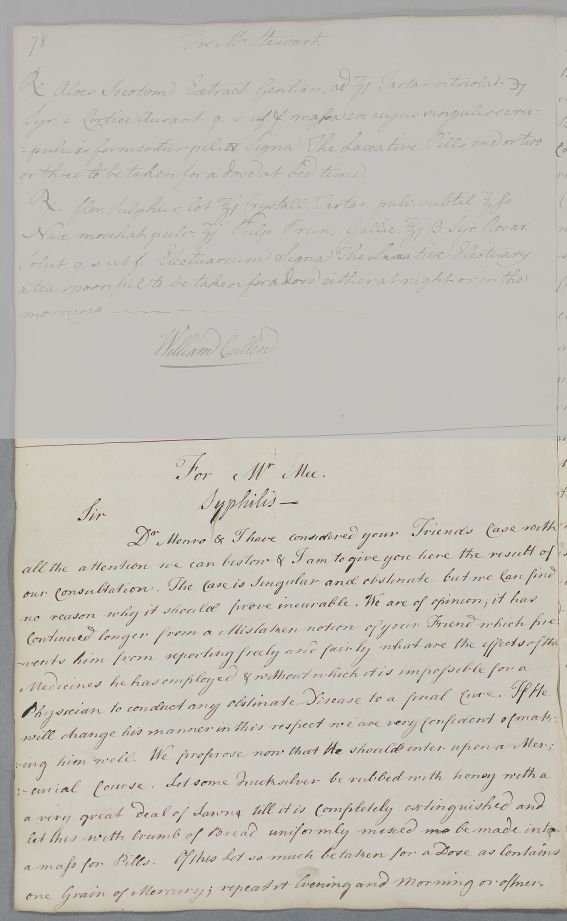 78
For Mr Stewart.
℞ Aloes Socotorin Extract Gentian. ad ʒj Tartar vitriolat ʒj
Syr. e Cortice Aurant. q. s. ut f. massa ex cujus singulis scru-
=pulis formentur pil. IV Signa The Laxative Pills one or two
or three to be taken for a dose at bed time.
℞. flor. Sulphur. lot ʒj Crystall. Tartar. pulv. subtil ʒſs
Nuc. moschat pulv. ʒj Pulp. Prun. Gallic. ʒj ß Syr Rosar.
Solut q. s. ut f. Electuarium Signa The Laxative Electuary
a tea spoonful to be taken for a dose either at night or in the
morning
William Cullen
For Mr Mee.
Syphilis —
Sir
Dr Monro & I have considered your Friends Case with
all the attention we can bestow & I am to give you here the result of
our Consultation. The Case is Singular and obstinate but we can find
no reason why it should prove incurable. We are of opinion, it has
Continued longer from a Mistaken notion of your Friend which pre
=vents him from reporting freely and fairly what are the effects of the
Medicines he has employed & without which it is impossible for a
Physician to conduct any obstinate Disease to a final Cure. If He
will change his manner in this respect we are very confident of mak-
ing him well. We proprose now that He should enter upon a Mer;
:-curial Course. Let some Quicksilver be rubbed with honey with a
a very great deal of till it is Completely extinguished and
let this with Crumb of Bread uniformly mixed be made into
a mass for Pills. Of this let so much be taken for a Dose as Contains
one Grain of Mercury; repeat it Evening and Morning or oftner.